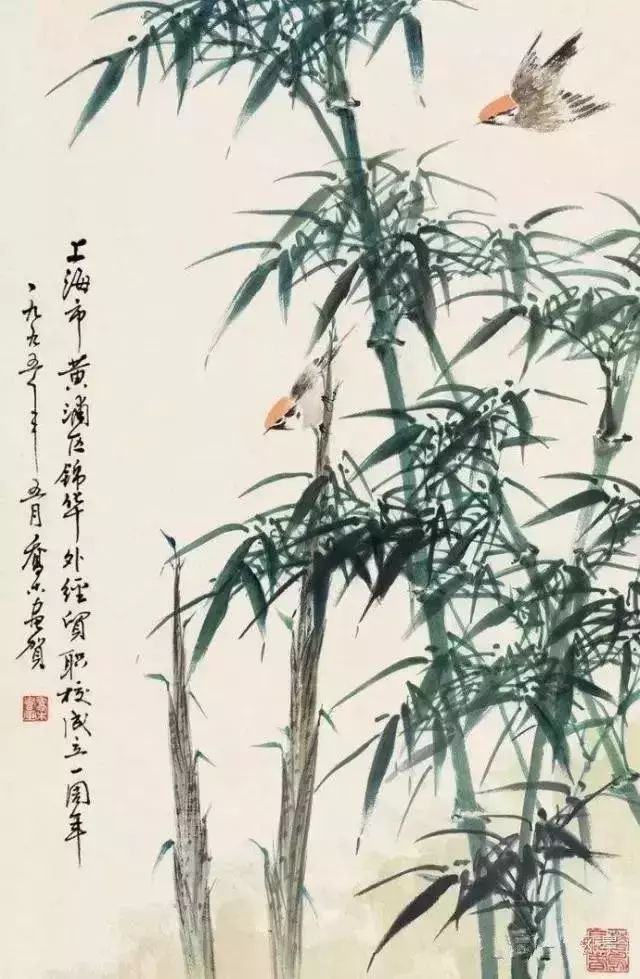 上海市黄浦区锦华外经贸职校成立一周年
一九九五年五月乔木画贺